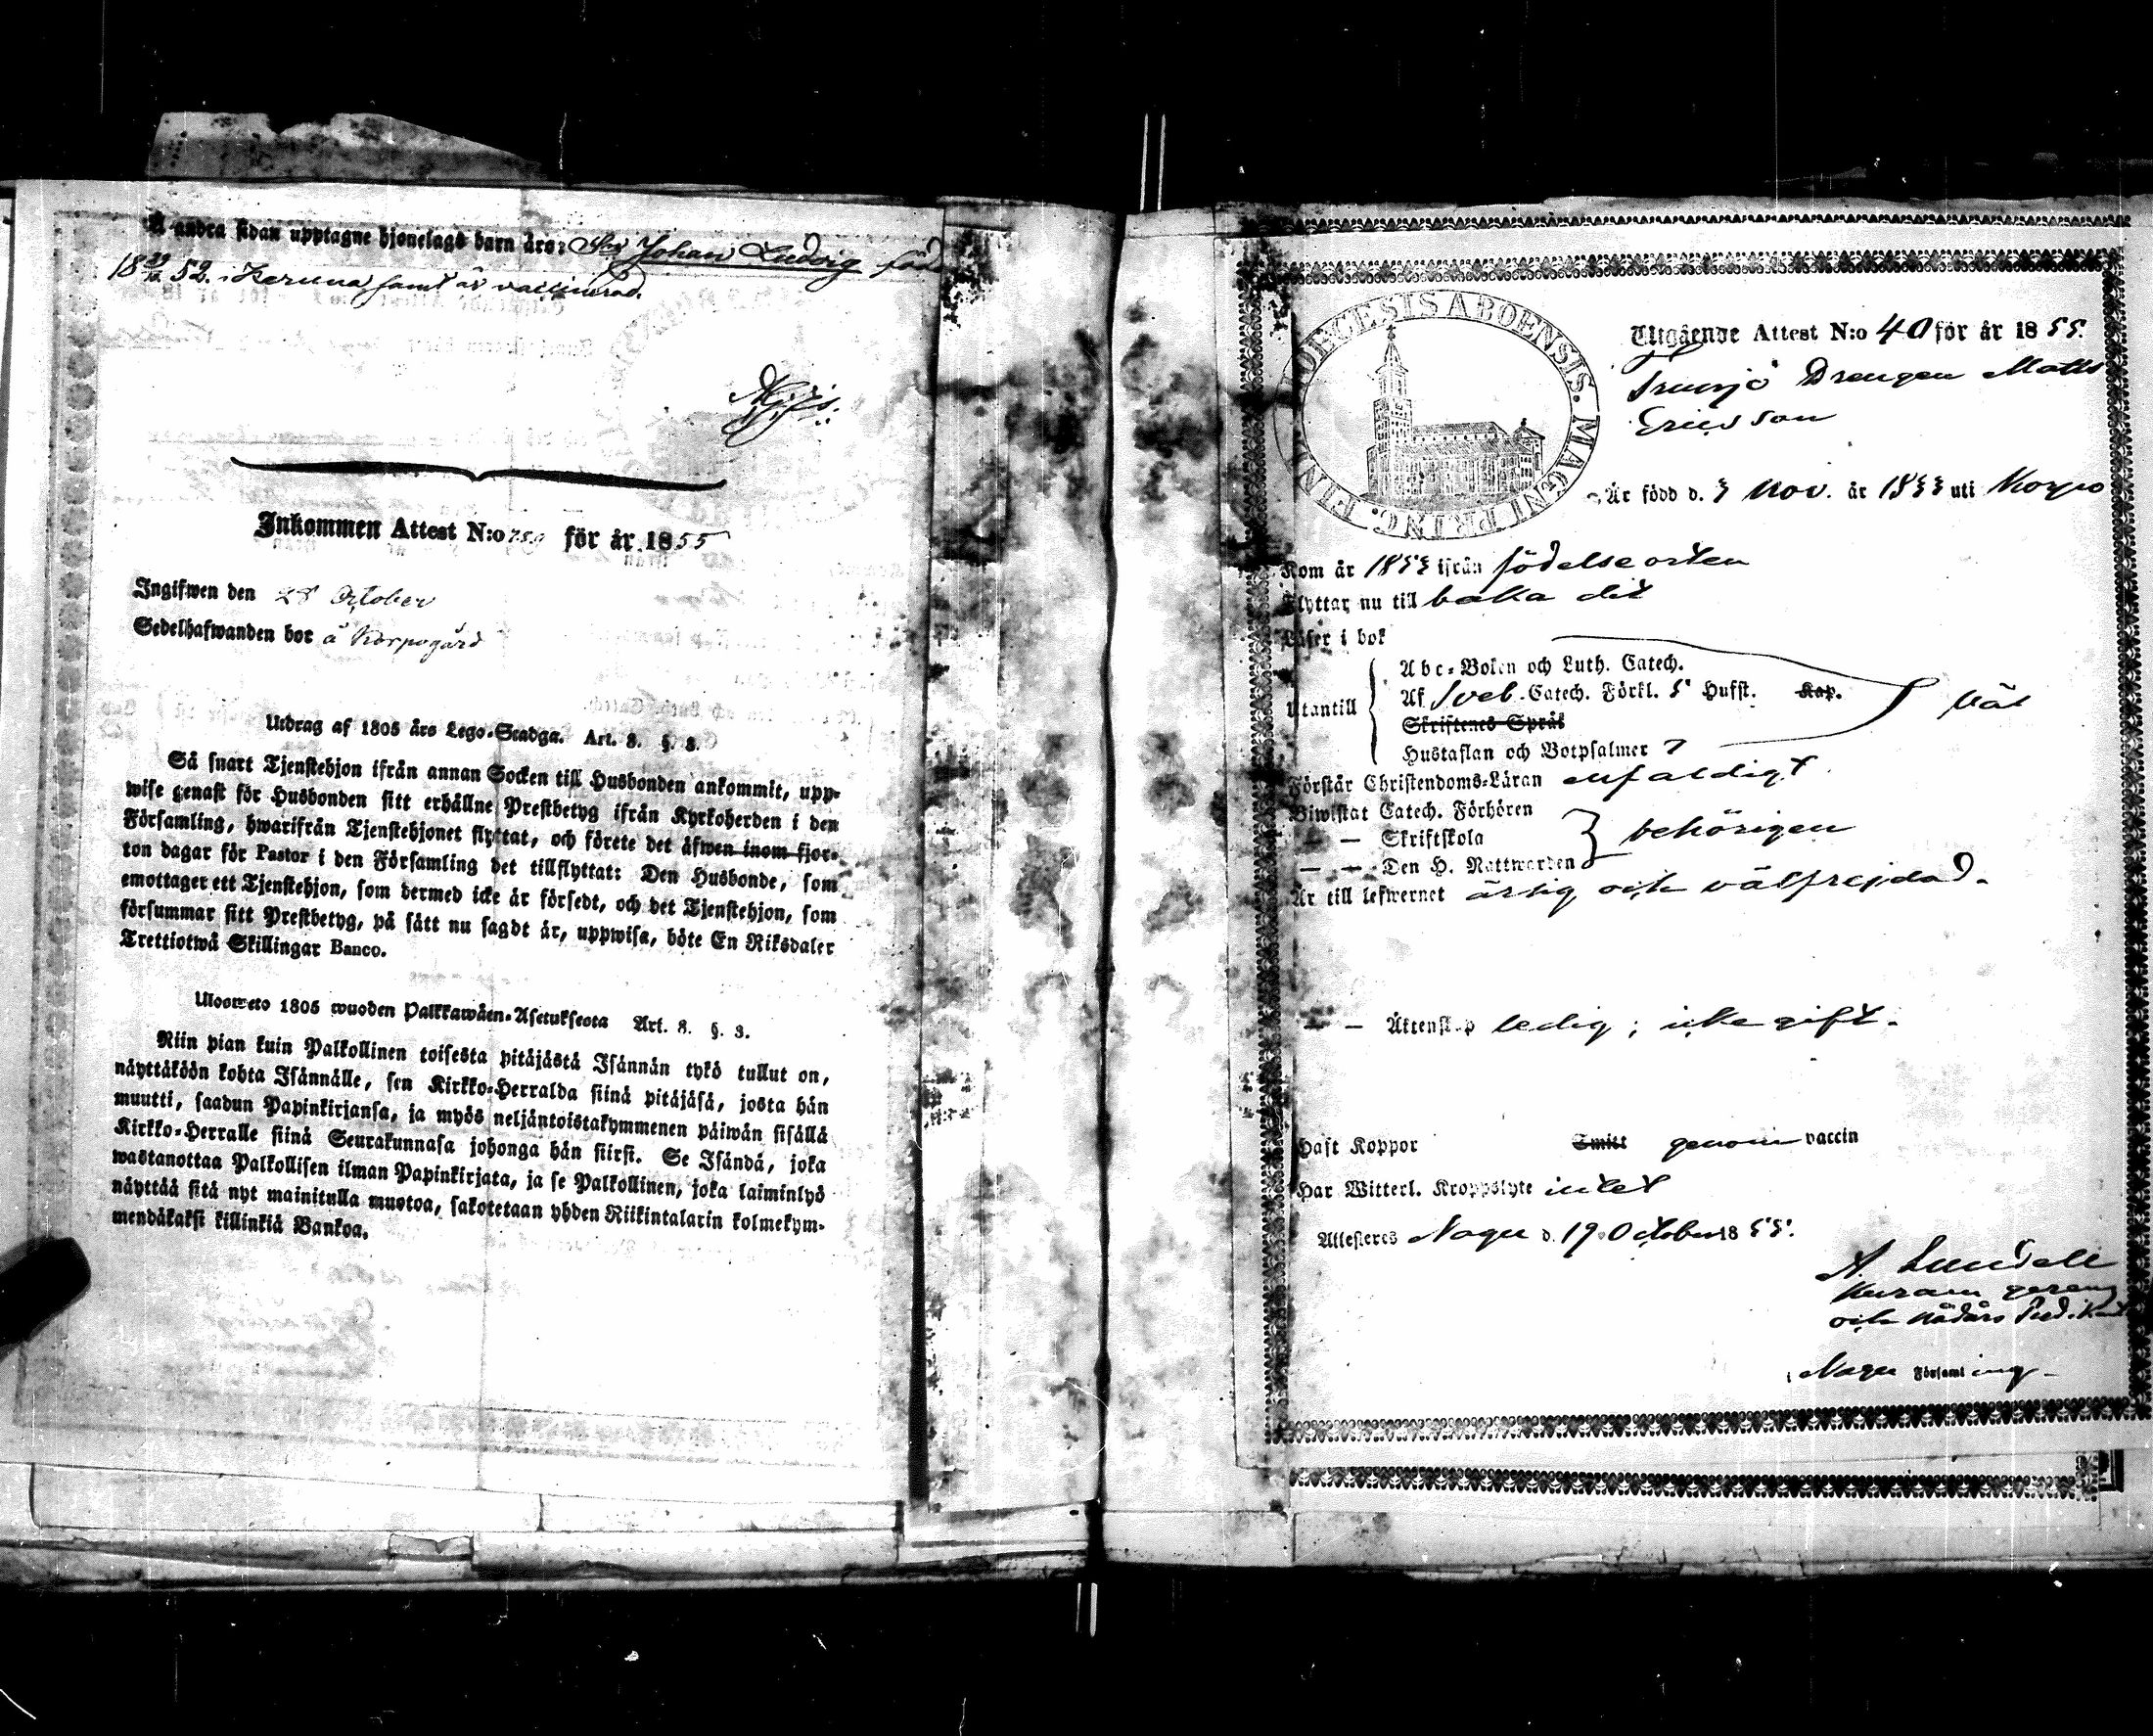 Å andra sidan upptagne hjonelags barn äro: Son Johan Ludvig född
18 29/12 52. i Karuna samt är vaccinerad.
Inkommen Attest N:o för år 1855
Ingifwen den 28 October
Sedelhafwanden bor å Korpogård
Utdrag af 1805 års Lego-Stadga. Art. 8. §. 3.
Så snart Tjenstehjon ifrån annan Socken till Husbonden ankommit, upp-
wise genast för Husbonden sitt erhållne Prestbetyg ifrån Kyrkoherden i den
Församling, hwarifrån Tjenstehjonet flyttat, och förete det äfwen inom fjor-
ton dagar för Pastor i den Församling det tillflyttat: Den Husbonde, som
emottager ett Tjenstehjon, som dermed icke är försedt, och det Tjenstehjon, som
försummar sitt Prestbetyg, på sätt nu sagdt är, uppwisa, böte En Riksdaler
Trettiotwå Skillingar Banco.
Ulosweto 1805 wuoden Palkkawäen-Asetuksesta Art. 8. §. 3.
Niin pian kuin Palkollinen toisesta pitäjästä Isännän tykö tullut on,
näyttäköön kohta Isännälle, sen Kirkko-Herralda siinä pitäjäsä, josta hän
muutti, saadun Papinkirjansa, ja myös neljäntoistakymmenen päiwän sisällä
Kirkko-Herralle siinä Seurakunnasa johonga hän siirsi. Se Isändä, joka
wastanottaa Palkollisen ilman Papinkirjata, ja se Palkollinen, joka laiminlyö
näyttää sitä nyt mainitulla muotoa, sakotetaan yhden Riikintalarin kolmekym-
mendäkaksi killinkiä Bankoa.
DIOECESIS ABOENSIS. MAGNI PRINC. FINL.
Utgående Attest N:o 40 för år 1855.
Drengen Matts
Ericsson
Är född d. 3 Nov. år 1833 uti Korpo
Kom år 1853 ifrån födelseorten
Flyttar nu till baka dit
Läser i bok
Abc-Boken och Luth. Catech.
Utantill Af Sveb. Catech. Förkl. 5 Hufst. Kap. väl
Skriftenes Språk
Hustaflan och Botpsalmer 7
Förstår Christendoms-Läran enfaldigt
Biwistat Catech. Förhören
— — Skriftskola behörigen
— — Den H. Nattwarden
Är till lefwernet ärlig och välfrejdad.
— — Äktenskap ledig; icke gift.
Haft Koppor Smitt genom vaccin
Har Witterl. Kroppslyte intet
Attesteras Nagu d. 19 October 1855.
A. Lundell
och Nådårs Predikant
i Nagu Församling